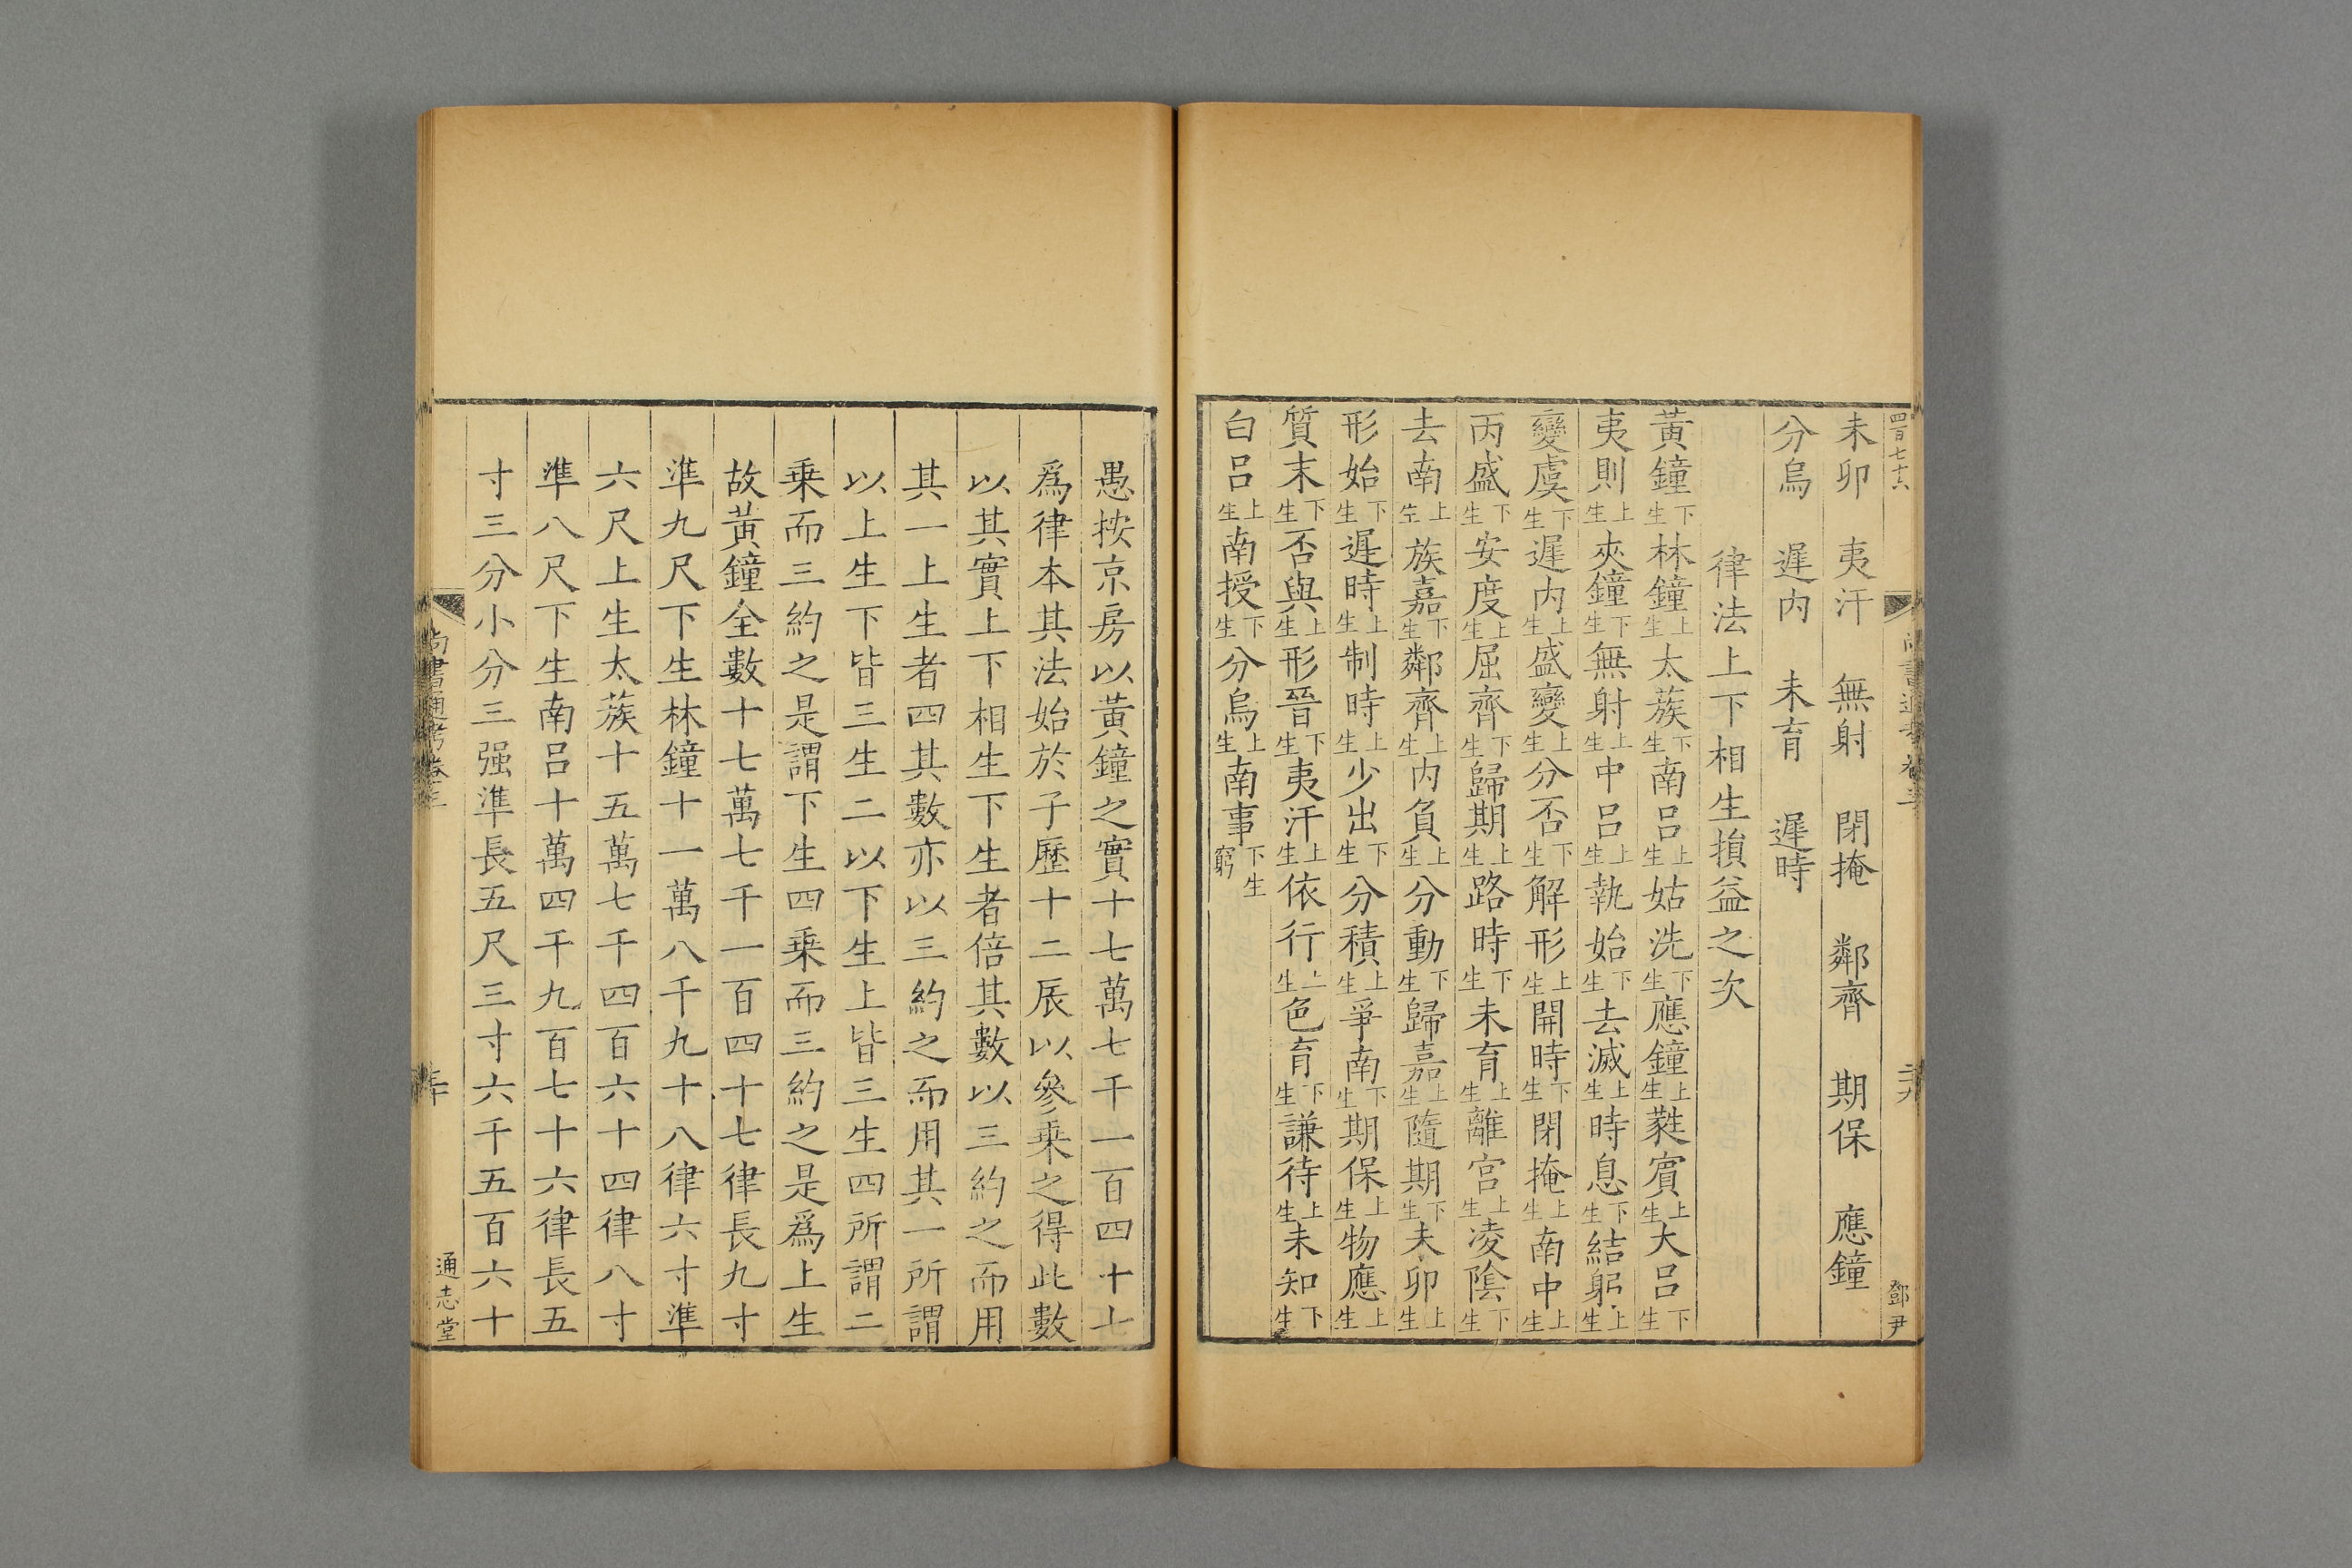 四百七十六
尚書通考卷三
二十九
鄧尹
未卯 夷汗 無射 閉掩 鄰齊 期保 應鐘
分烏 遲内 未育 遲時
律法上下相生損益之次
黃鐘下生林鐘上生太蔟下生南呂上生姑洗下生應鐘上生蕤賓上生大呂下生
夷則上生夾鐘下生無射上生中呂上生執始下生去滅上生時息下生結躬上生
變虞下生遲内上生盛變上生分否下生解形上生開時下生閉掩上生南中上生
丙盛下生安度上生屈齊下生歸期上生路時下生未育上生離宫上生凌陰下生
去南上生族嘉下生鄰齊上生内負上生分動下生歸嘉上生隨期下生未卯上生
形始下生遲時上生制時上生少出下生分積上生爭南下生期保上生物應上生
質末下生否與上生形晉下生夷汗上生依行上生色育下生謙待上生未知下生
白呂上生南授下生分烏上生南事下生窮
愚按京房以黃鐘之實十七萬七千一百四十七
爲律本其法始於子歷十二辰以參乘之得此數
以其實上下相生下生者倍其數以三約之而用
其一上生者四其數亦以三約之而用其一所謂
以上生下皆三生二以下生上皆三生四所謂二
乗而三約之是謂下生四乗而三約之是爲上生
故黃鐘全數十七萬七千一百四十七律長九寸
準九尺下生林鐘十一萬八千九十八律六寸準
六尺上生太蔟十五萬七千四百六十四律八寸
準八尺下生南呂十萬四千九百七十六律長五
寸三分小分三强準長五尺三寸六千五百六十
尚書通考卷三
三十
通志堂